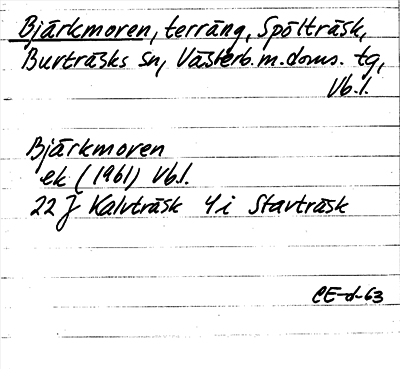 Bjärkmoren, terräng, Spölträsk,
Burträsks sn, Västerb.m.doms. tg,
Vb.l.
Bjärkmoren
ek (1961) Vb.l.
22 J Kalvträsk 4 i Stavträsk
CE-d-63